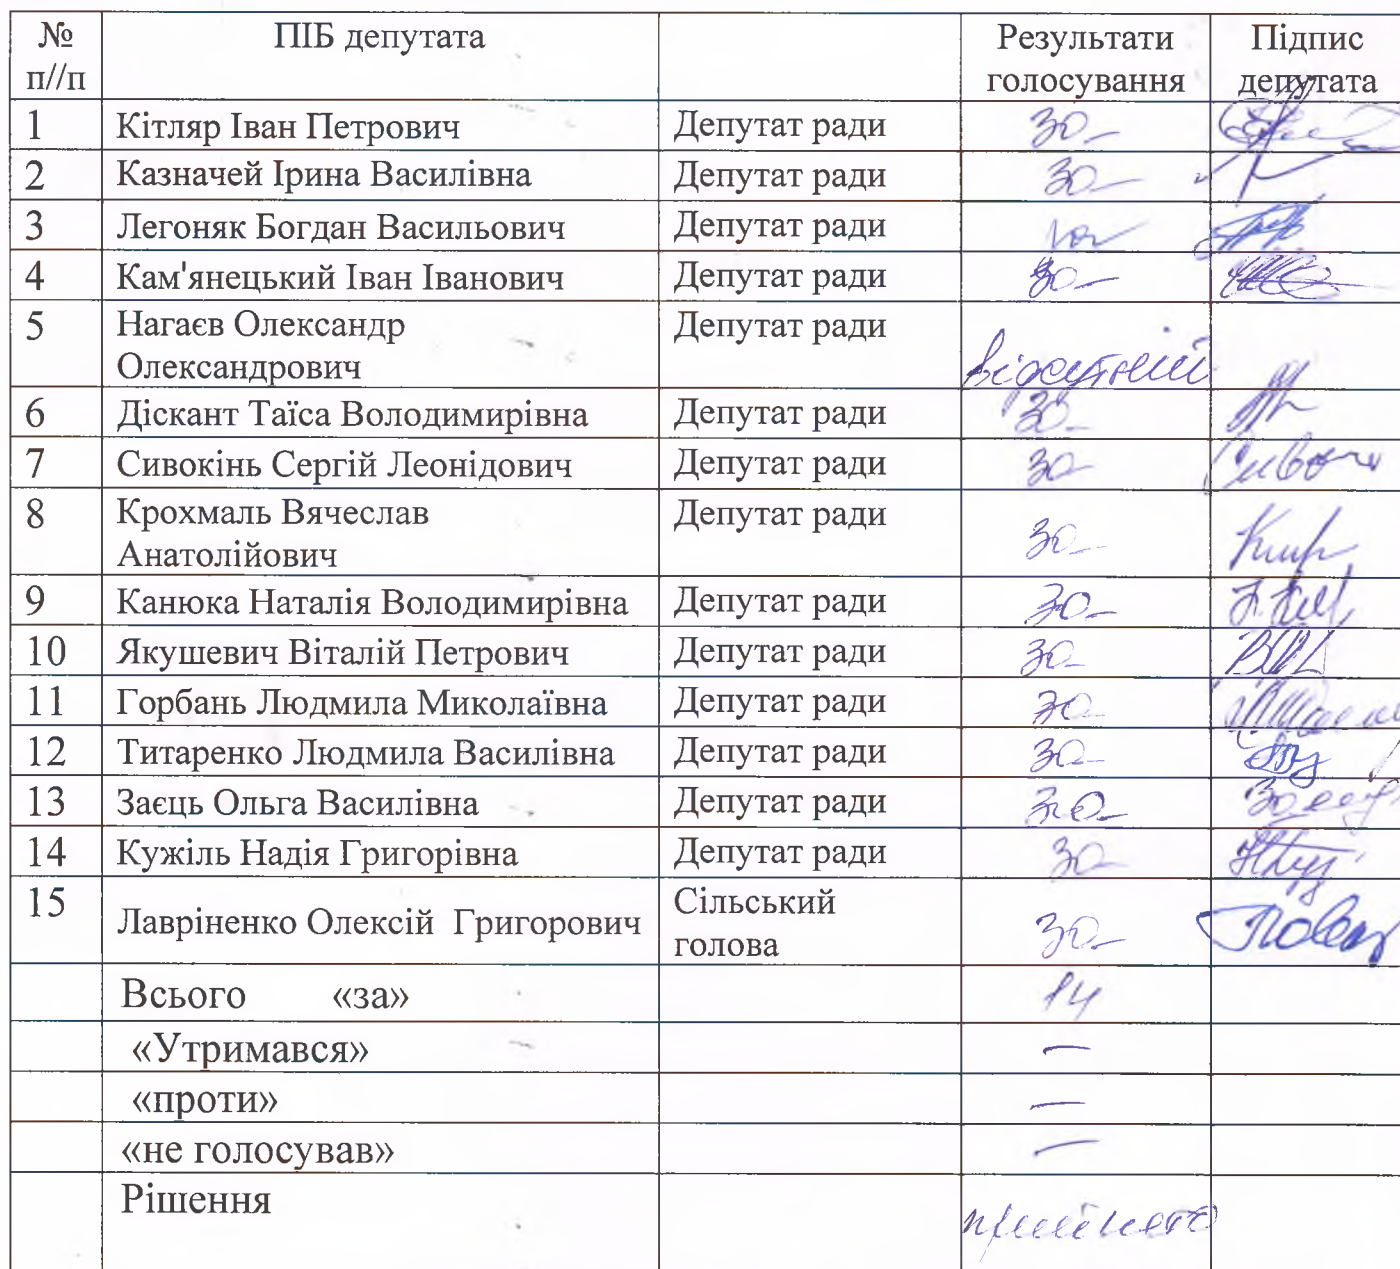 № п//п ПІБ депутата Результати голосування Підпис депутата
1 Кітляр Іван Петрович Депутат ради за
2 Казначей Ірина Василівна Депутат ради за
3 Легоняк Богдан Васильович Депутат ради
4 Кам'янецький Іван Іванович Депутат ради за
5 Нагаєв Олександр Олександрович Депутат ради відсутній
6 Діскант Таїса Володимирівна Депутат ради за
7 Сивокінь Сергій Леонідович Депутат ради за
8 Крохмаль Вячеслав Анатолійович Депутат ради за
9 Канюка Наталія Володимирівна Депутат ради за
10 Якушевич Віталій Петрович Депутат ради за
11 Горбань Людмила Миколаївна Депутат ради за
12 Титаренко Людмила Василівна Депутат ради за
13 Заєць Ольга Василівна Депутат ради за
14 Кужіль Надія Григорівна Депутат ради за
15 Лавріненко Олексій Григорович Сільський голова за
Всього «за» 14
«Утримався» —
«проти» —
«не голосував» —
Рішення прийнято